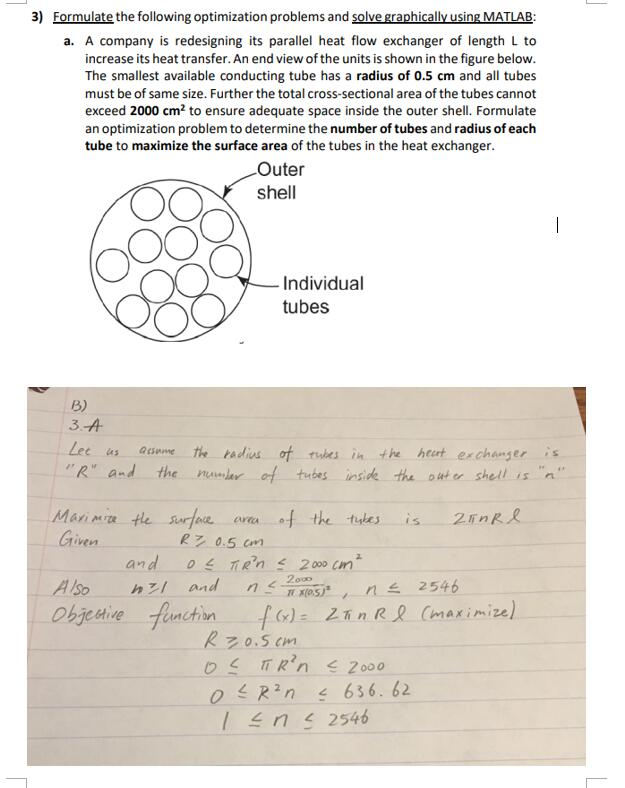 3) Formulate the following optimization problems and solve graphically using MATLAB:
a. A company is redesigning its parallel heat flow exchanger of length L to
increase its heat transfer. An end view of the units is shown in the figure below.
The smallest available conducting tube has a radius of 0.5 cm and all tubes
must be of same size. Further the total cross-sectional area of the tubes cannot
exceed 2000 cm² to ensure adequate space inside the outer shell. Formulate
an optimization problem to determine the number of tubes and radius of each
tube to maximize the surface area of the tubes in the heat exchanger.
Outer
shell
Individual
tubes
B)
3.A
Let us assume the radius of tubes in the heat exchanger is
"R" and the number of tubes inside the outer shell is "n"
Maximize the surface area of the tubes is 2πnRl
Given R ≥ 0.5 cm
and 0 ≤ πR²n ≤ 2000 cm²
Also n≥1 and n ≤ 2000/π×(0.5)², n ≤ 2546
Objective function f(x) = 2πnRl (maximize)
R ≥ 0.5 cm
0 ≤ πR²n ≤ 2000
0 ≤ R²n ≤ 636.62
1 ≤ n ≤ 2546